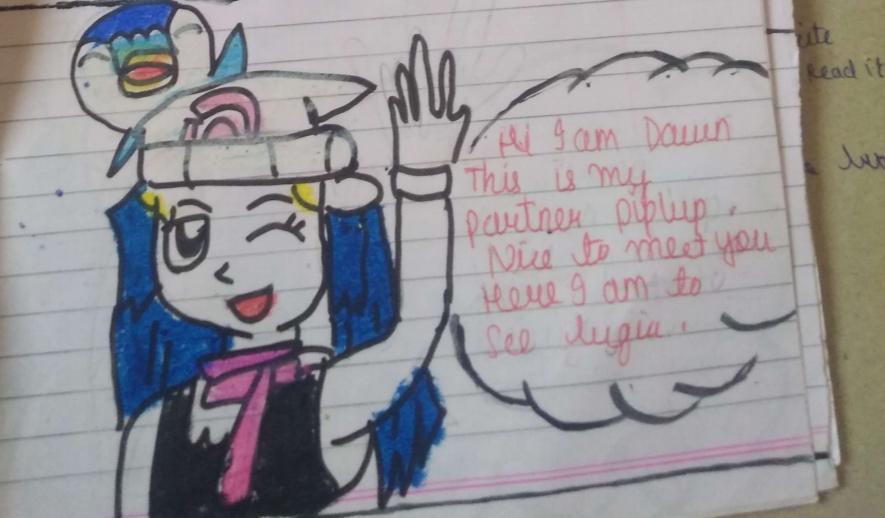 Hi I am Dawn
This is my
partner piplup.
Nice to meet you
Here I am to
See lugia.
Read it